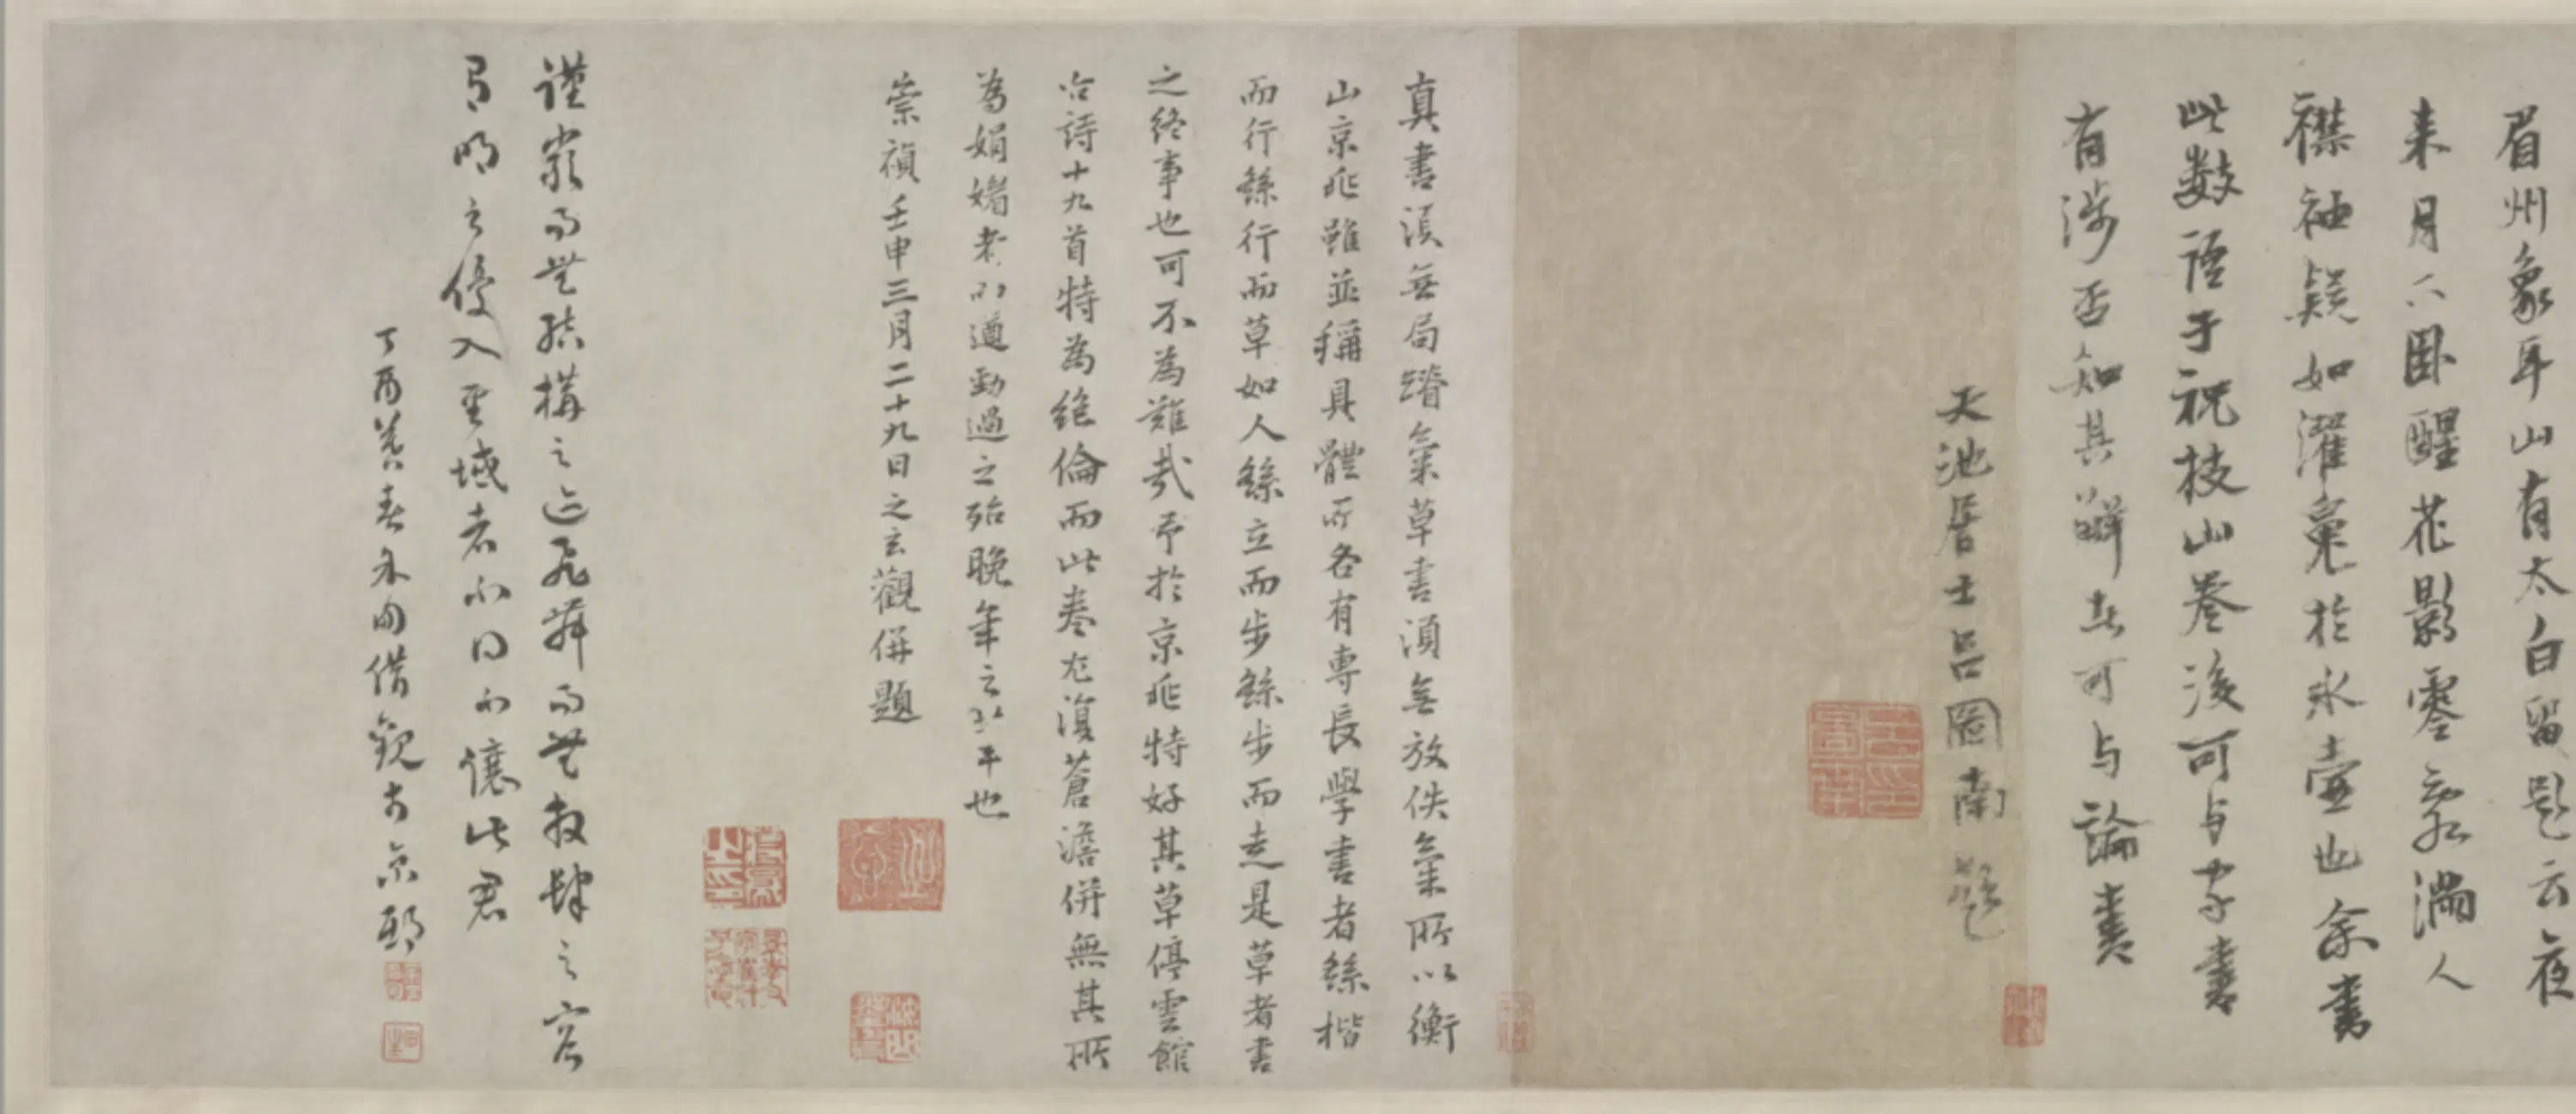 眉州象耳山有太白留題云夜
來月下臥醒花影零亂滿人
襟袖疑如濯魄於氷壺也余書
此數語于祝枝山卷後可与字書
有涉否知其解者可与論書
天池居士呂圖南題
真書須無局蹐氣草書須無放佚氣所以衡
山京兆雖並稱具體而各有專長學書者繇楷
而行繇行而草如人繇立而步繇步而走是草者書
之終事也可不為難哉予於京兆特好其草停雲館
古詩十九首特為絕倫而此卷尤復蒼澹併無其所
為娟媚者而遒勁過之殆晚年之
也
崇禎壬申三月二十九日之玄觀併題
謹嚴而無結構之迹飛舞而無放肆之容
有明之優入聖域者不得不讓此君
丁酉
借觀